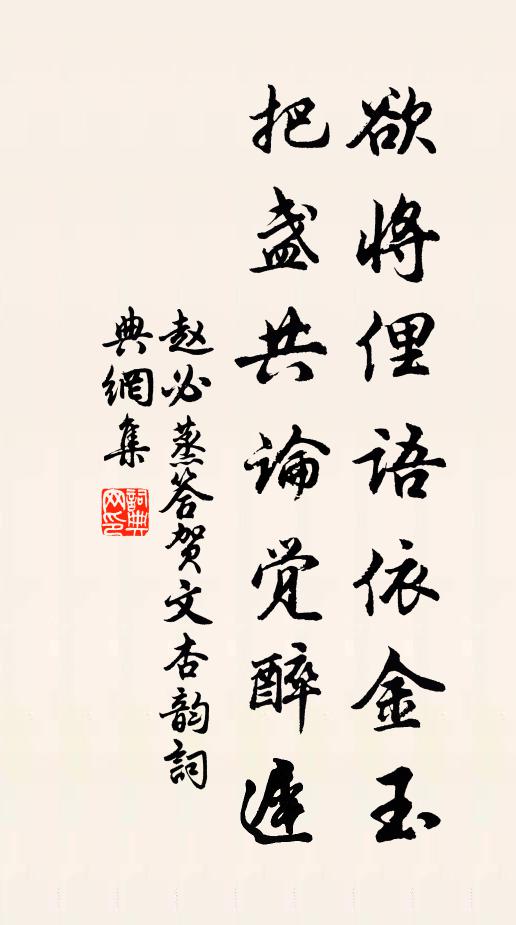 欲将俚语依金玉
把盏共論觉醉遲
赵必蒸答贺文杏韵詞
典網集
詞典
网印